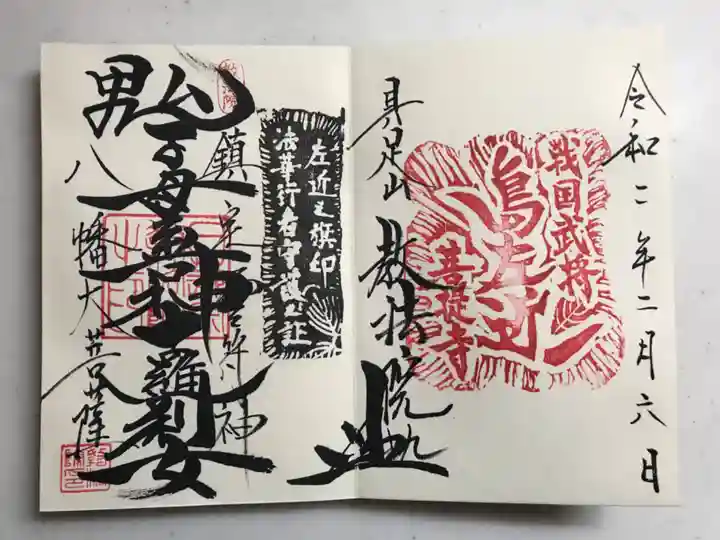 令和二年二月六日
戦国武将
島左近
菩提寺
具足山 教法院
左近之旗印
法華行者守護之証
鎮宅霊符神
鬼子母善神十羅刹女
男八幡大菩薩